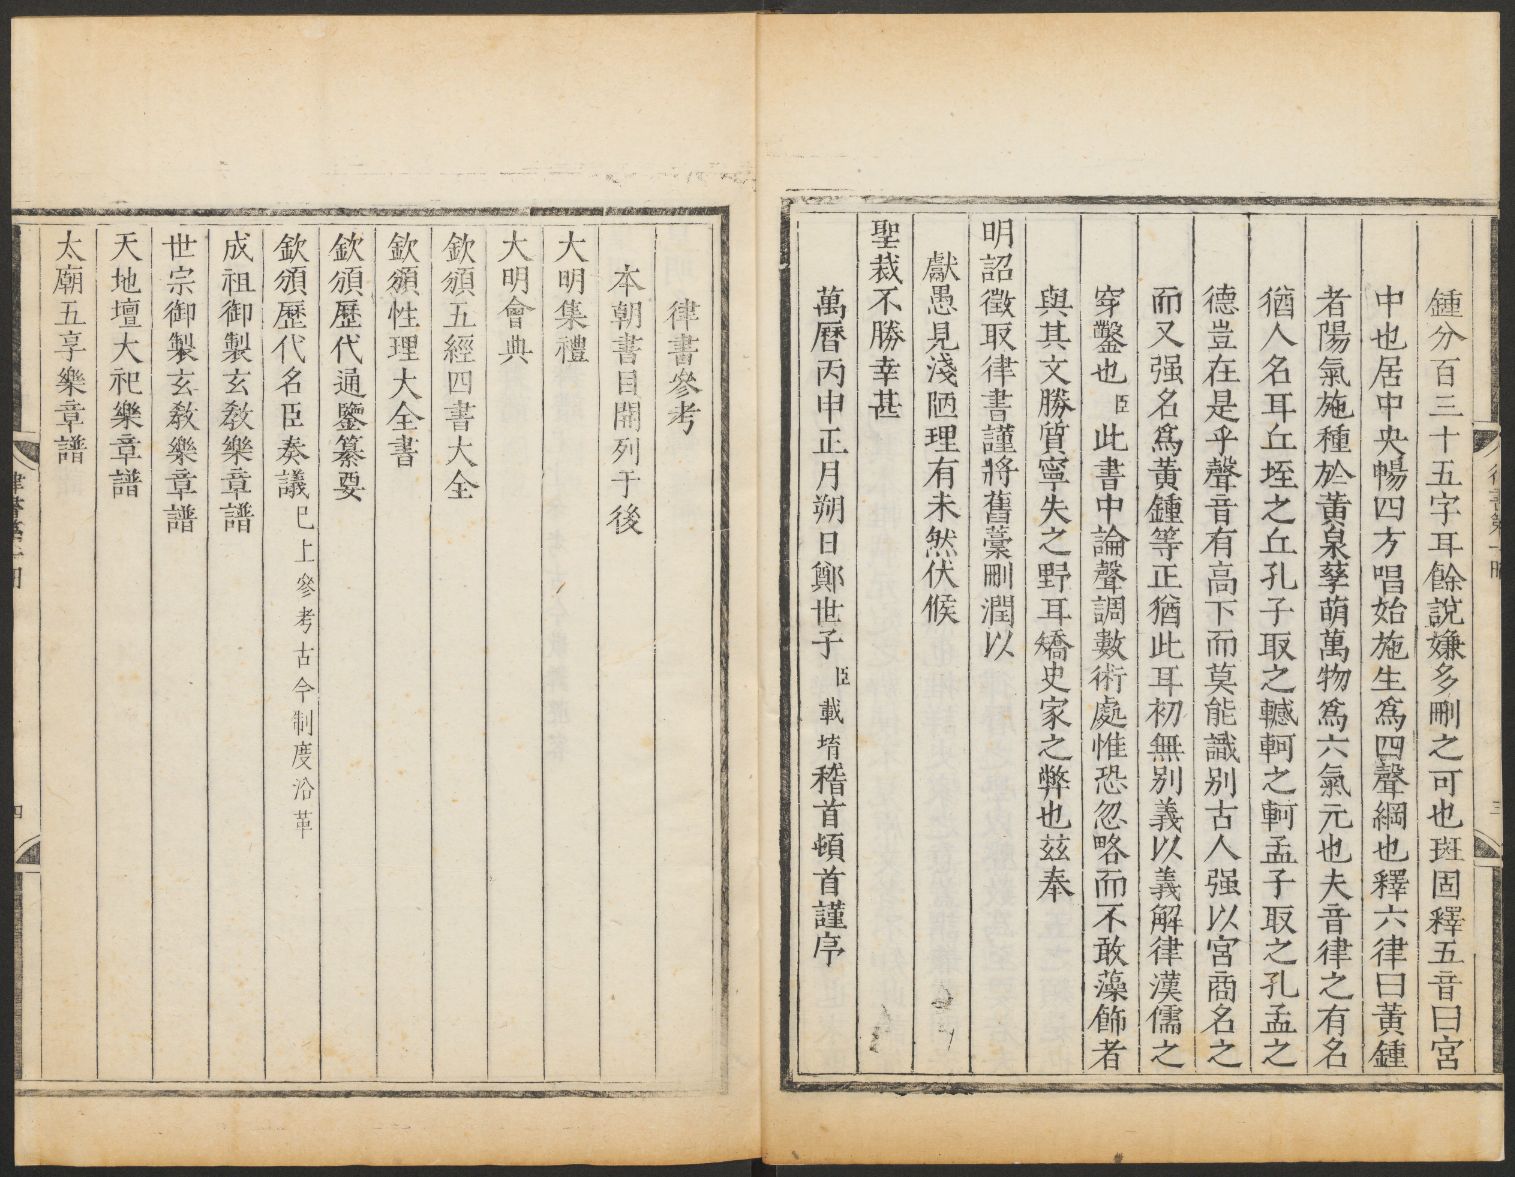 鍾分百三十五字耳餘說嫌多刪之可也班固釋五音曰宮
中也居中央暢四方唱始施生爲四聲綱也釋六律曰黃鍾
者陽氣施種於黃泉孳萌萬物爲六氣元也夫音律之有名
猶人名耳丘垤之丘孔子取之轗軻之軻孟子取之孔孟之
德豈在是乎聲音有高下而莫能識别古人强以宮商名之
而又强名爲黃鍾等正猶此耳初無别義以義解律漢儒之
穿鑿也臣此書中論聲調數術處惟恐忽略而不敢藻飾者
與其文勝質寧失之野耳矯史家之弊也玆奉
明詔徵取律書謹將舊藁刪潤以
獻愚見淺陋理有未然伏候
聖裁不勝幸甚
萬曆丙申正月朔日鄭世子臣載堉稽首頓首謹序
律書參考
本朝書目開列于後
大明集禮
大明會典
欽頒五經四書大全
欽頒性理大全書
欽頒歷代通鑒纂要
欽頒歷代名臣奏議已上參考古今制度沿革
成祖御製玄敎樂章譜
世宗御製玄敎樂章譜
天地壇大祀樂章譜
太廟五享樂章譜
四